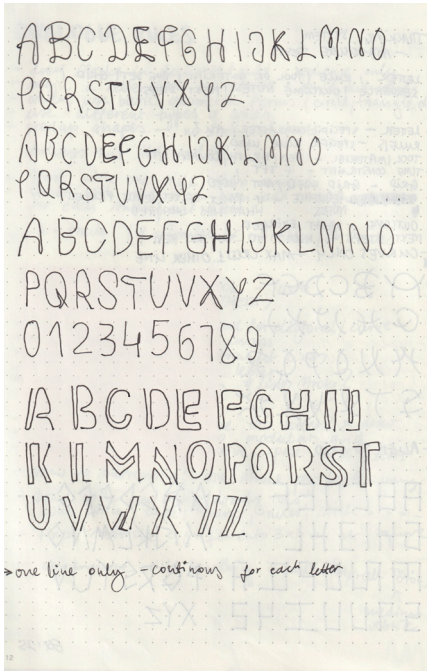 A B C D E F G H I J K L M N O
P Q R S T U V X Y Z
A B C D E F G H I J K L M N O
P Q R S T U V X Y Z
A B C D E F G H I J K L M N O
P Q R S T U V X Y Z
0 1 2 3 4 5 6 7 8 9
A B C D E F G H I J
K L M N O P Q R S T
U V W X Y Z
> one line only - continous for each letter